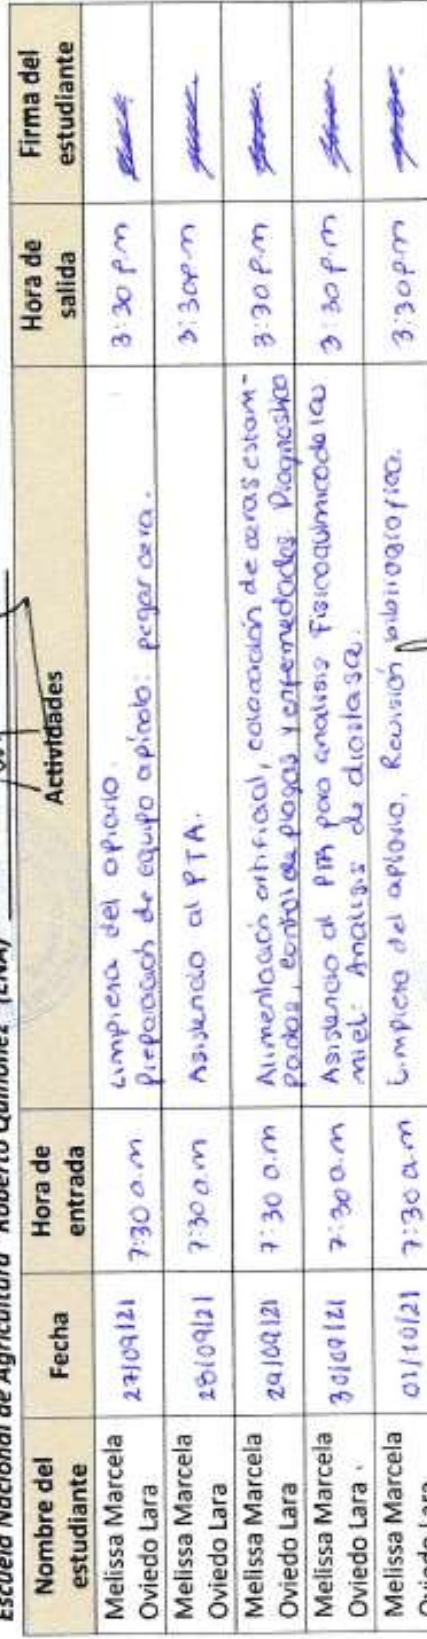 Escuela Nacional de Agricultura "Roberto Quiñonez" (ENA)
Nombre del estudiante | Fecha | Hora de entrada | Actividades | Hora de salida | Firma del estudiante
Melissa Marcela Oviedo Lara | 27/09/21 | 7:30 a.m | Limpieza del apiario. | 3:30 p.m
Preparación de equipo apícola: pegar cera.
Melissa Marcela Oviedo Lara | 28/09/21 | 7:30 a.m | Asistencia al PTA. | 3:30 p.m
Melissa Marcela Oviedo Lara | 29/09/21 | 7:30 a.m | Alimentación artificial, colocación de ceras estam- | 3:30 p.m
padas, control de plagas y enfermedades. Diagnostico
Melissa Marcela Oviedo Lara | 30/09/21 | 7:30 a.m | Asistencia al PTA para analisis Fisicoquimico de las | 3:30 p.m
miel: Analisis de diastasa.
Melissa Marcela Oviedo Lara | 01/10/21 | 7:30 a.m | Limpieza del apiario, Revisión bibliografica. | 3:30 p.m